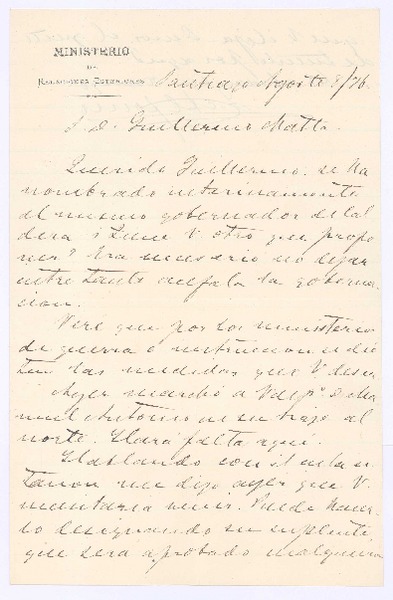 MINISTERIO
DE
RELACIONES ESTERIORES
Santiago Agosto 8/76.
S. D. Guillermo Matta.
Querido Guillermo: se ha
nombrado interinamente
al mismo gobernador de Cal
dera ¿Tiene V. otro que propo
ner? Era necesario no dejar
entre tanto acéfala la goberna
cion.
Veré que por los ministerios
de guerra e instruccion se dic
ten las medidas que V. desea
Ayer marchó a Valpº. D. Ma
nuel Antonio en su viaje al
norte. Hará falta aquí.
Hablando con
me dijo ayer que V.
venir. Puede hacer
lo designando su suplente,
que será aprobado cualquiera